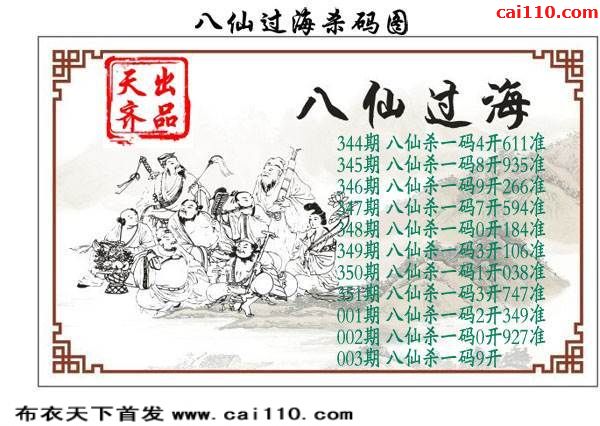 八仙过海杀码图
cai110.com
天 出
齐 品
八仙过海
344期 八仙杀一码4开611准
345期 八仙杀一码8开935准
346期 八仙杀一码9开266准
347期 八仙杀一码7开594准
348期 八仙杀一码0开184准
349期 八仙杀一码3开106准
350期 八仙杀一码1开038准
351期 八仙杀一码3开747准
001期 八仙杀一码2开349准
002期 八仙杀一码0开927准
003期 八仙杀一码9开
布衣天下首发 www.cai110.com